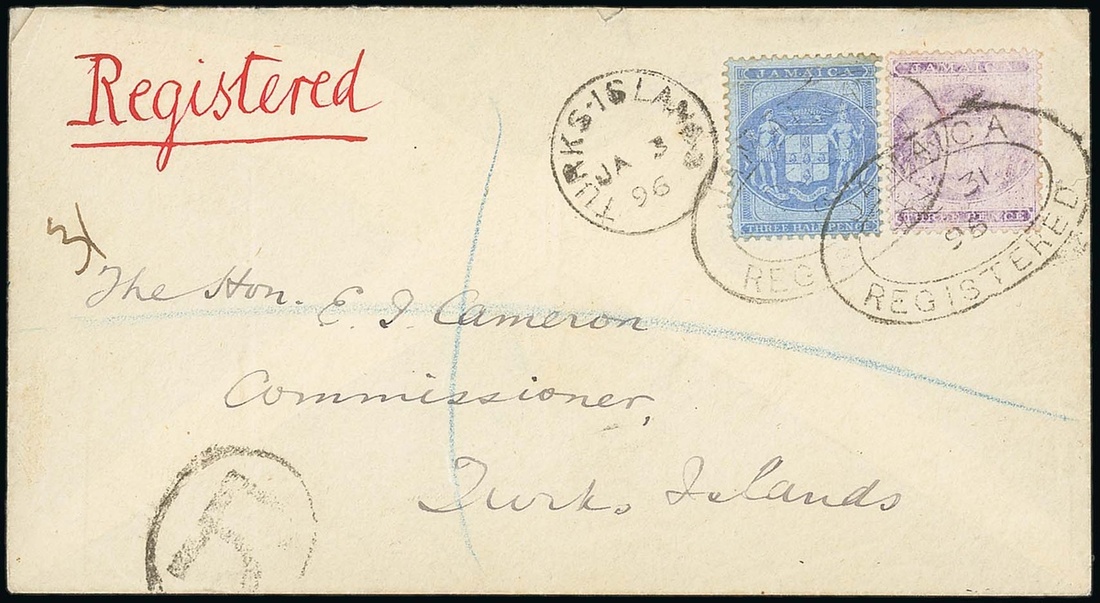 Registered
TURKS-ISLANDS
JA 3
96
JAMAICA
THREE HALF PENCE
JAMAICA
THREE PENCE
JAMAICA
31
96
REGISTERED
REG
The Hon. E. J. Cameron
Commissioner,
Turks Islands